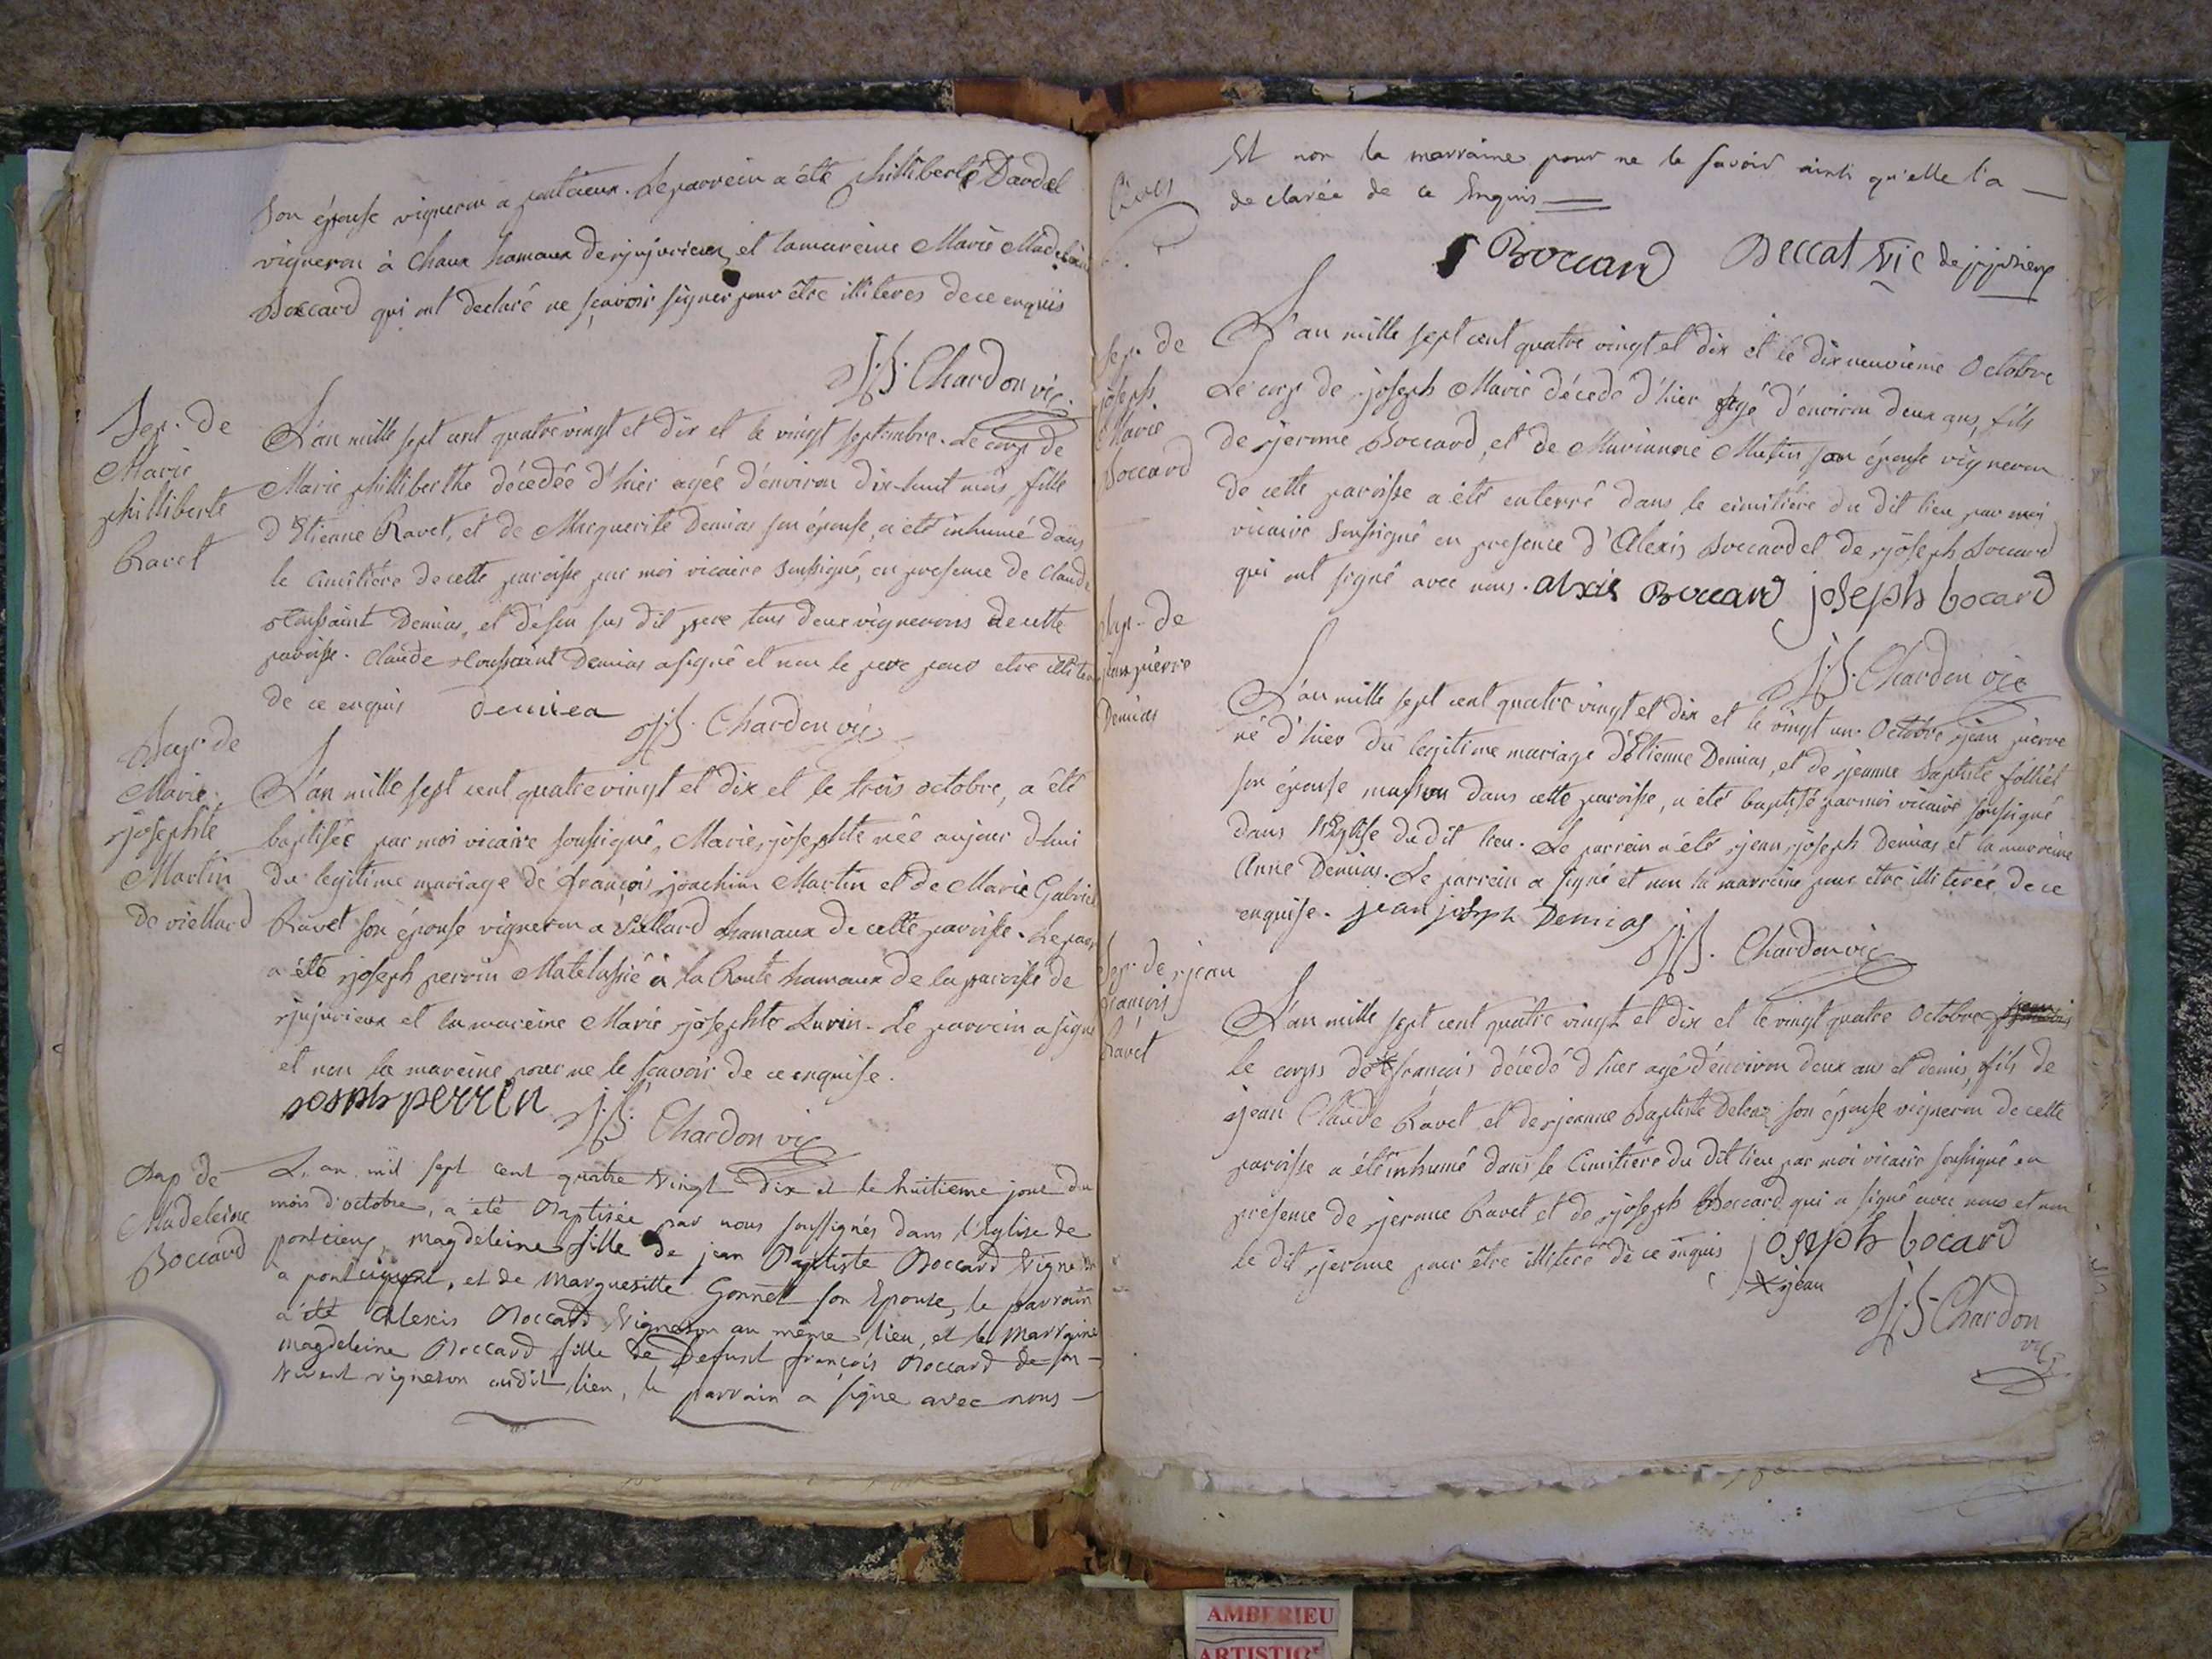 son épouse vigneron a pontcieux. Le parrein a êté phillibertê Dardel
vigneron à Chaux hamaux de jujurieux, et la mareine Marie Madeleine
Boccard qui ont declarê ne sçavoir signer pour être illiteres de ce enquis
J.B. Chardon vic.
Sep. de
Marie
philliberte
Ravet
L'an mille sept cent quatre vingt et dix et le vingt septembre. Le corps de
Marie philliberthe décedêe d'hier agée d'environ dix huit mois, fille
d'Etienne Ravet, et de Marguerite Demias son épouse, a etê inhumé dans
le Cimitiére de cette paroisse par moi vicaire soussigné, en presence de Claude
toussaint Demias, et de son sus dit pere tous deux vignerons de cette
paroisse. Claude toussaint Demias a signé et non le pere pour etre illitere
de ce enquis demiea J.B. Chardon vic
Bap. de
Marie
josephte
Martin
de viellard
L'an mille sept cent quatre vingt et dix et le trois octobre, a êté
baptisée par moi vicaire soussigné, Marie josephte née aujour d'hui
du legitime mariage de françois joachim Martin et de Marie Gabriel
Ravet son épouse vigneron a viellard hamaux de cette paroisse. Le parr
a êté joseph perrin Matelassié à la Route hamaux de la paroisse de
jujurieux et la mareine Marie josephte Lurin. Le parrein a signé
et non la mareine pour ne le sçavoir de ce enquise.
joseph perrin J.B. Chardon vic
Bap de
Madeleine
Boccard
L'an mil sept cent quatre vingt dix et le huitieme jour du
mois d'octobre, a été Baptisée par nous soussignés dans l'Eglise de
pontcieux, magdeleine fille de jean Baptiste Boccard vigneron
a pontcieux, et de Marguesitte Gonnet son Epouse, le parrain
a été Alexis Boccard vigneron au même lieu, et la marraine
magdeleine Boccard fille de Defunt françois Boccard de son
vivent vigneron audit lieu, le parrain a signe avec nous
Et non la marraine pour ne le savoir ainsi qu'elle l'a
declarée de ce Enquis
Boccard Beccat vic de jujurieux
Sep. de
joseph
Marie
Boccard
L'an mille sept cent quatre vingt et dix et le dix neuvieme Octobre
Le corps de joseph Marie décedé d'hier agé d'environ deux ans, fils
de jerome Boccard, et de Marianne Mutin son épouse vigneron
de cette paroisse a êté enterré dans le cimitiére du dit lieu par moi
vicaire soussigné en presence d'Alexis Boccard et de joseph Boccard
qui ont signé avec nous. alxis Boccard joseph bocard
J.B. Chardon vic
Bap. de
jean pierre
Demias
L'an mille sept cent quatre vingt et dix et le vingt un Octobre jean pierre
né d'hier du legitime mariage d'Etienne Demias, et de jeanne baptiste folliet
son épouse masson dans cette paroisse, a été baptisé par moi vicaire soussigné
dans l'Eglise du dit lieu. Le parrein a été jean joseph Demias et la mareine
Anne Demias. Le parrein a signé et non la marreine pour être illiterée, de ce
enquise. jean joseph Demias
J.B. Chardon vic
Sep. de jean
françois
Ravet
L'an mille sept cent quatre vingt et dix et le vingt quatre Octobre
le corps de françois décedé d'hier agé d'environ deux ans et demis, fils de
jean Claude Ravet et de jeanne Baptiste son épouse vigneron de cette
paroisse a êté inhumé dans le Cimitiére du dit lieu par moi vicaire soussigné en
presence de jerome Ravet et de joseph Boccard qui a signé avec nous et non
le dit jerome pour être illiteré de ce enquis joseph bocard
jean
J.B. Chardon
vic
AMBERIEU
ARTISTIQ